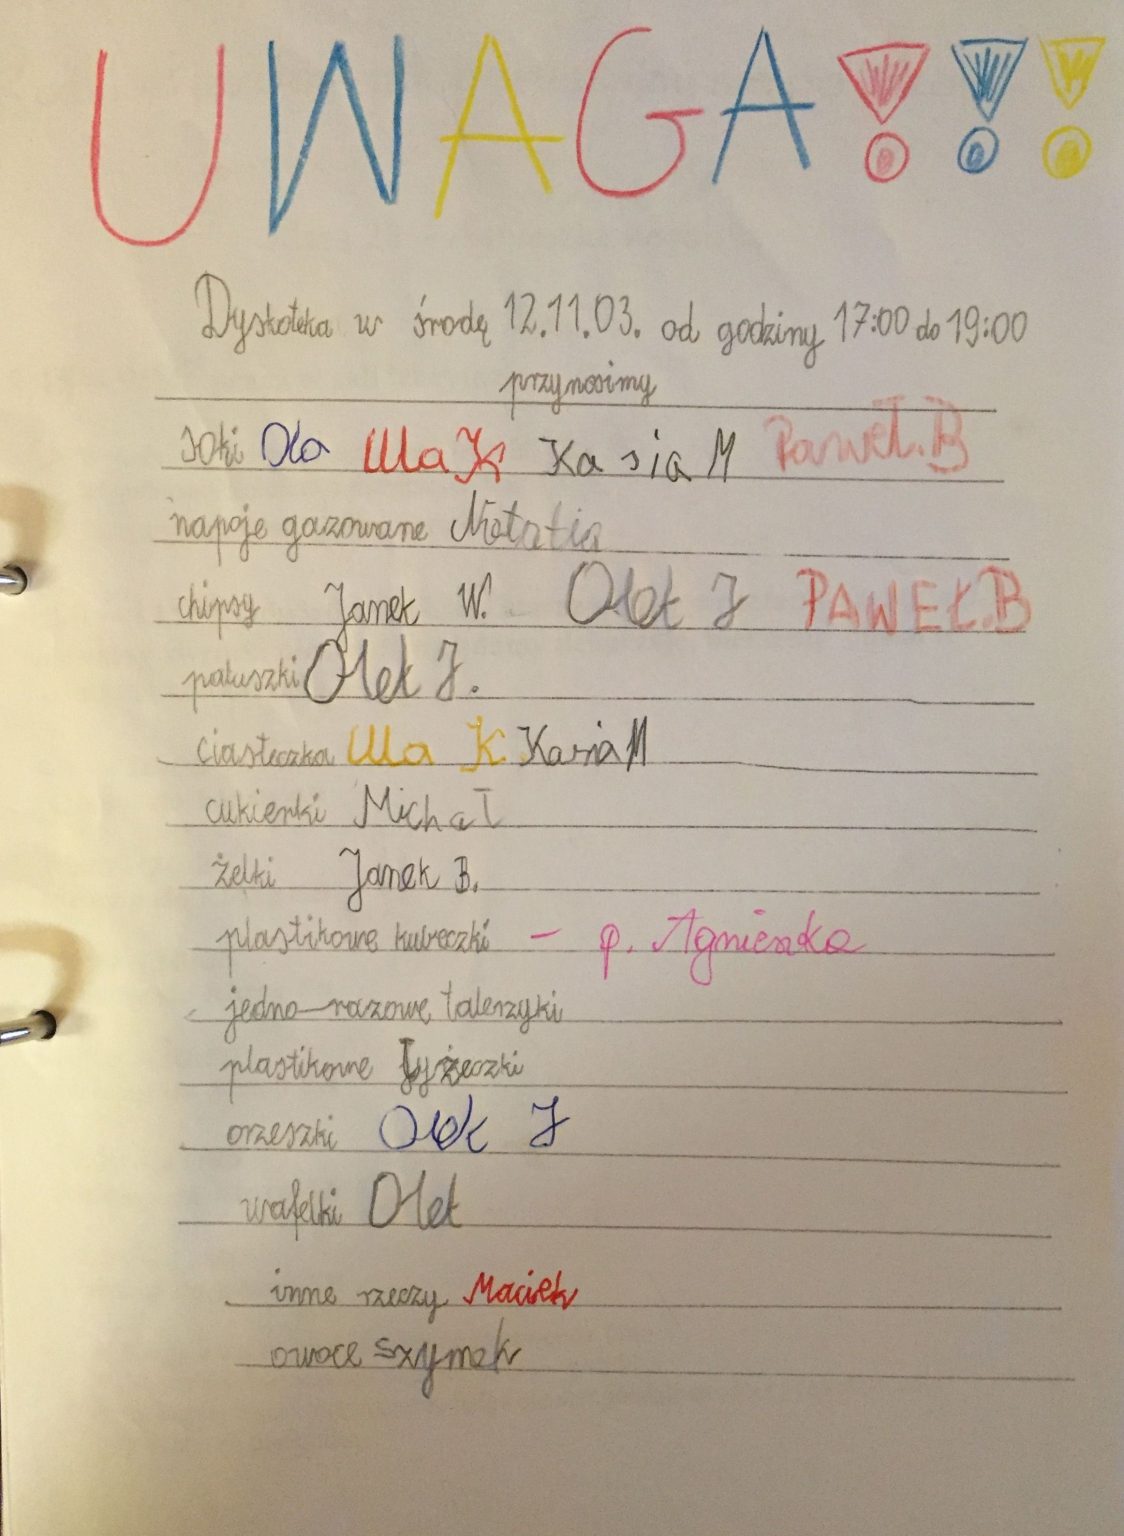 UWAGA!!!
Dyskoteka w środę 12.11.03. od godziny 17:00 do 19:00
przynosimy
soki Ola Ula K Kasia M Paweł.B
napoje gazowane Natalia
chipsy Janek W. Olek J PAWEŁ.B
paluszki Olek J.
ciasteczka Ula K Kasia M
cukierki Michał
żelki Janek B.
plastikowe kubeczki – p. Agnieszka
jedno-razowe talerzyki
plastikowe łyżeczki
orzeszki Olek J
wafelki Olek
inne rzeczy Maciek
owoce Szymek